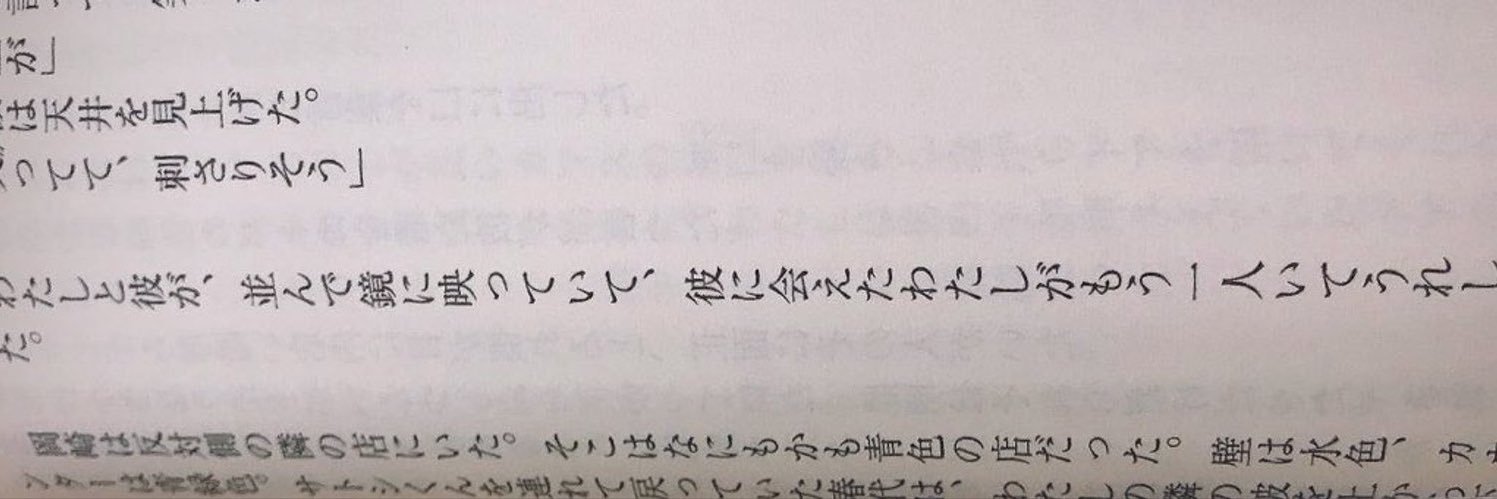 が」
は天井を見上げた。
ってて、刺さりそう」
わたしと彼が、並んで鏡に映っていて、彼に会えたわたしがもう一人いてうれし
た。
岡崎は反対側の隣の店にいた。そこはなにもかも青色の店だった。壁は水色、カウ
ンターは青緑色。サトシくんを連れて戻っていた春代は、わたしの隣の